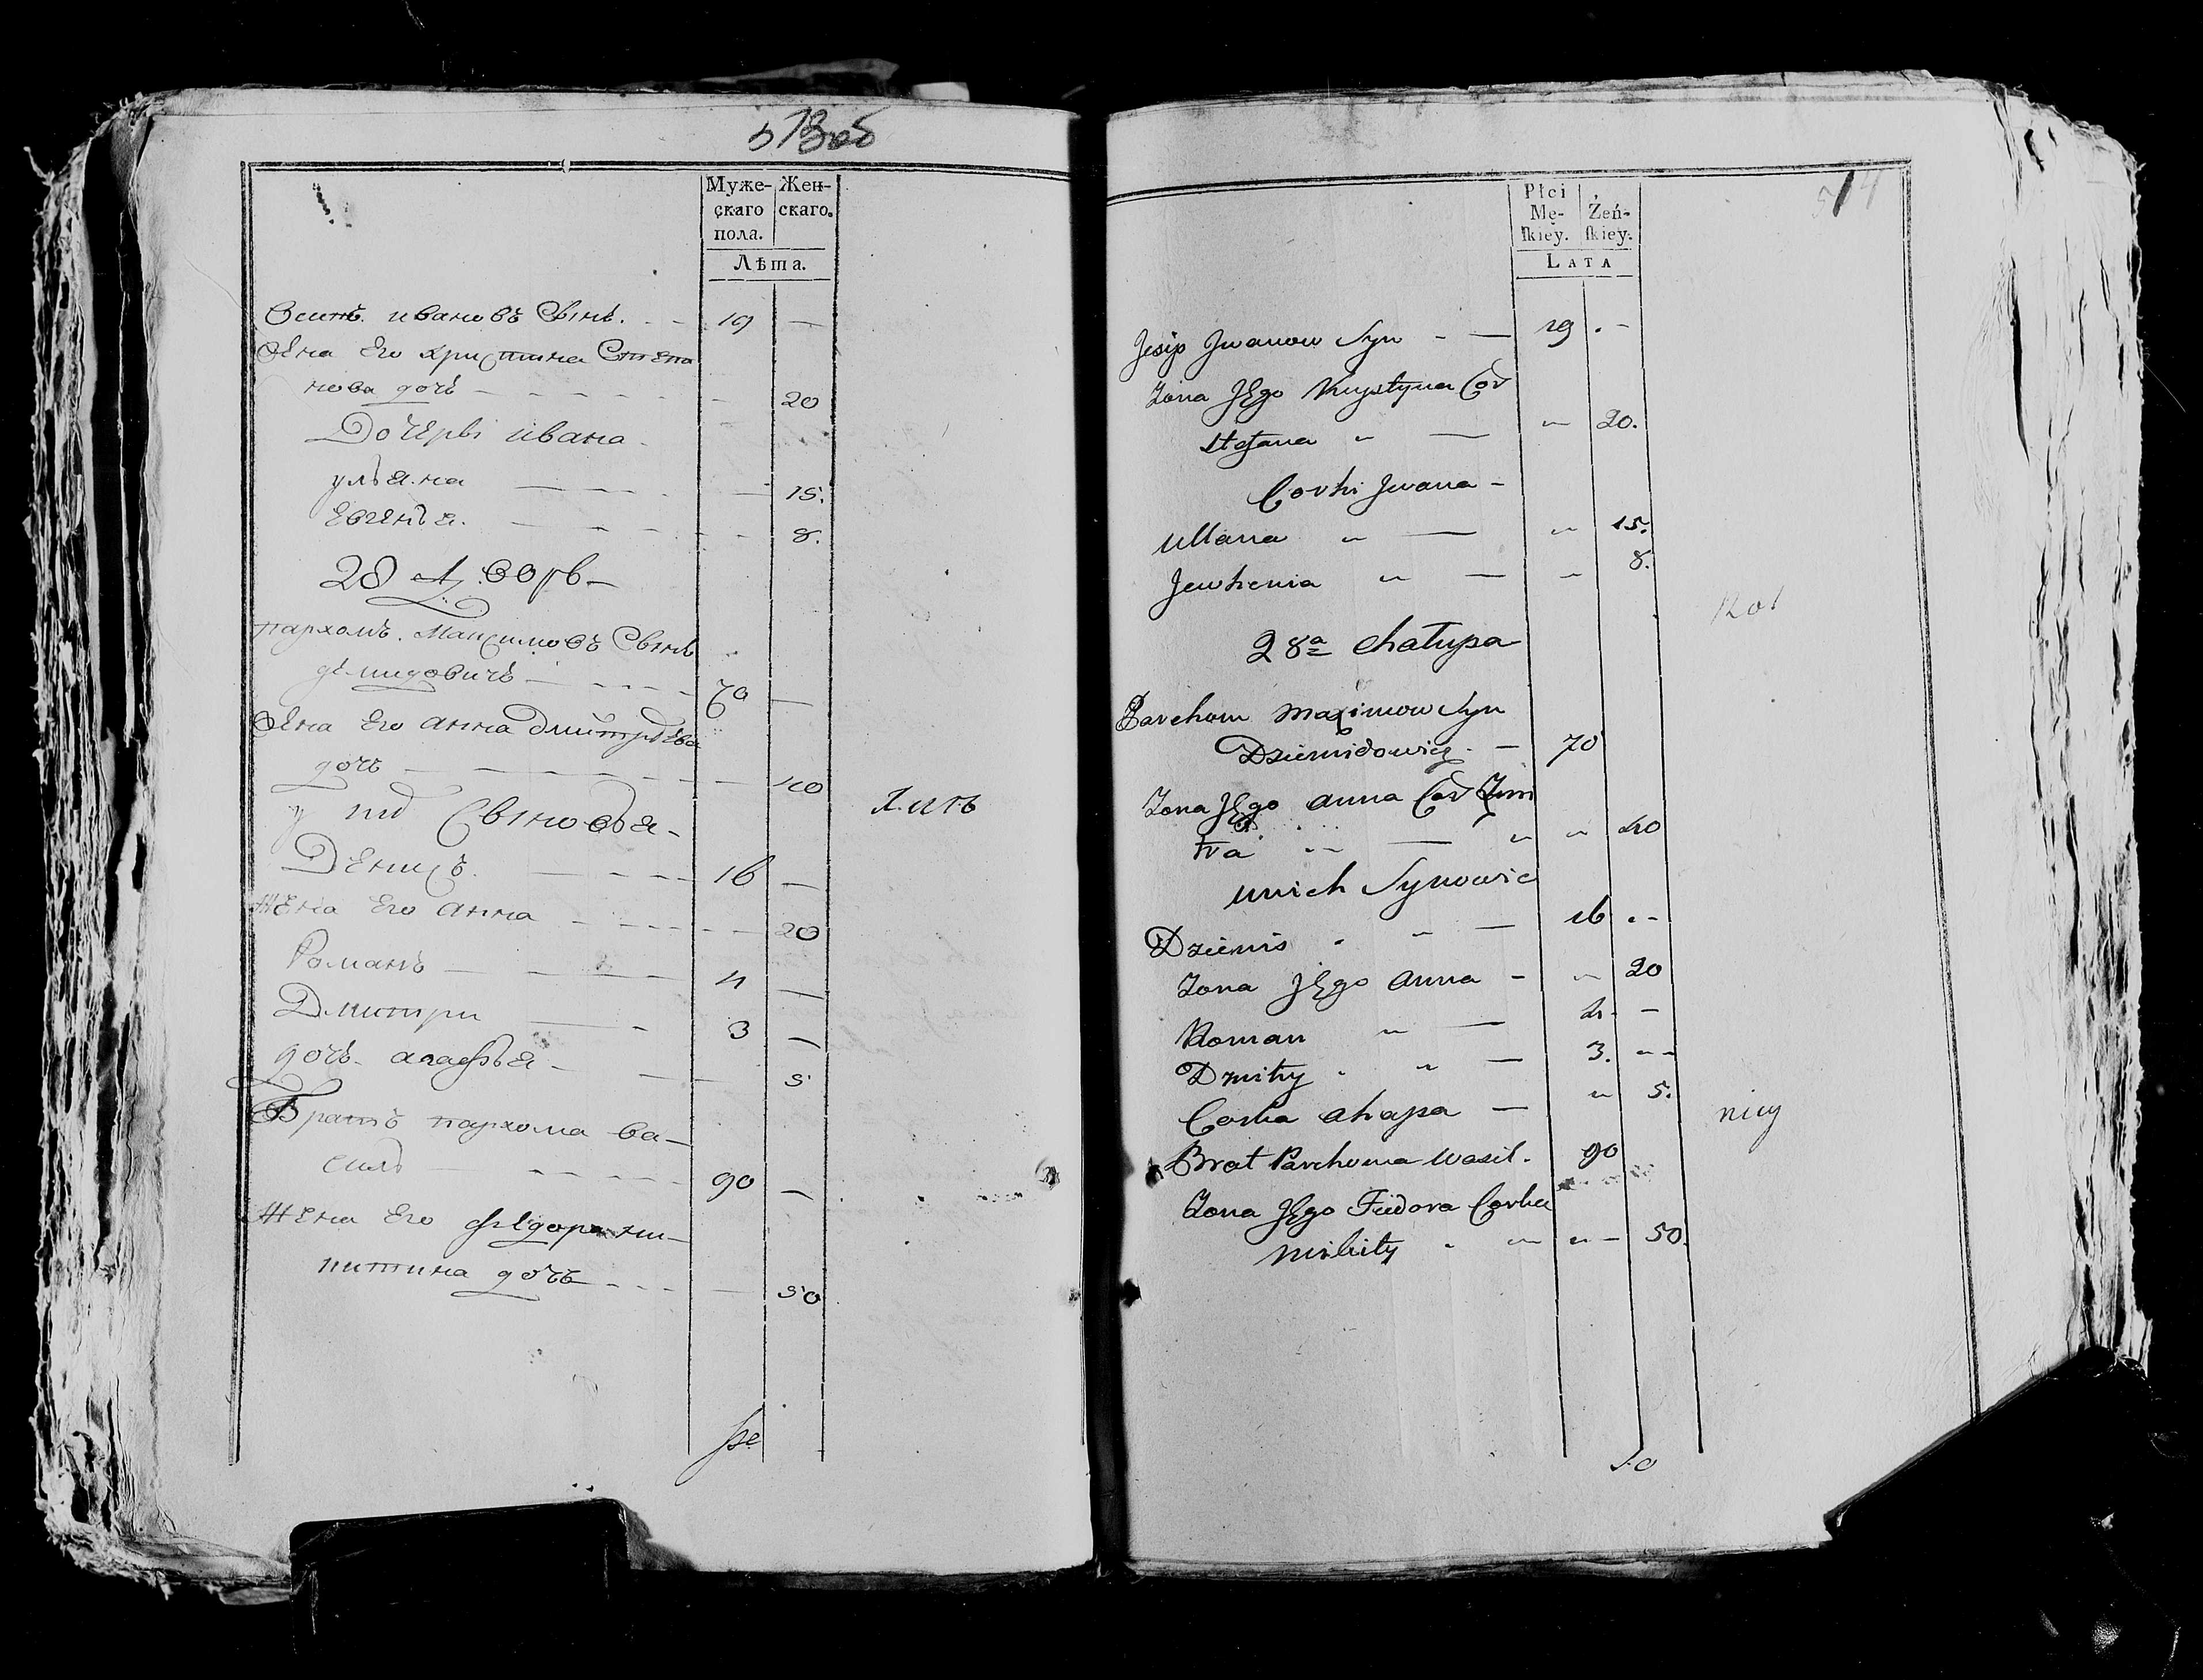 573об
Муже- Жен-
скаго скаго.
пола.
Лѣта.
Осипъ ивановъ Сынъ. - - 19 —
Жена Его христина Степа
нова дочь - - - - - 20
Дочерьi ивана -
ульяна — - - - — 15.
Евгенья. — - - - - 8.
28 Дворъ —
пархомъ. Максимовъ Сынъ
демидовичь — - - - 70 —
Жена Его анна дмитрѣева
дочь — - - - — 40
у ни Сыновья -
Денисъ. — - - - 16 —
Жена Его Анна - - - - 20
Романъ — — — 4 —
Дмитри — - 3 —
дочь - агафья - — — 5
Братъ пархома ва-
силь — - - - 90 —
Жена Его федора ни-
китина дочь - - - — 50
574
Płci
Mę- Żeń-
skiey. skiey.
LATA
Jesip Jwanow Syn - — 19 . -
Żona JEgo Krystyna Cor
Stefana " — " 20.
Corki Jwana -
Ullana " — " 15.
Jewhenia " — - 8.
28a Chałupa
Parchom Maximow Syn
Dziemidowicz - — 70
Żona JEgo Anna Cor Dmi
tra " — " " 40
unich Synowie
Dzienis . " — 16 . -
Żona JEgo Anna - " 20
Roman " — 4. -
Dmitry . " — 3. - -
Corka Ahapa — " 5.
Brat Parchoma Wasil. 90
Żona JEgo Fiedora Corka
Mikity . " " — 50.